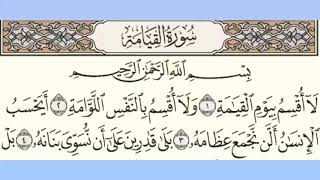 سُورَةُ الْقِيَامَةِ
بِسْمِ اللَّهِ الرَّحْمَٰنِ الرَّحِيمِ
لَا أُقْسِمُ بِيَوْمِ الْقِيَامَةِ ١ وَلَا أُقْسِمُ بِالنَّفْسِ اللَّوَّامَةِ ٢ أَيَحْسَبُ
الْإِنسَانُ أَلَّن نَّجْمَعَ عِظَامَهُ ٣ بَلَىٰ قَادِرِينَ عَلَىٰ أَن نُّسَوِّيَ بَنَانَهُ ٤ بَلْ